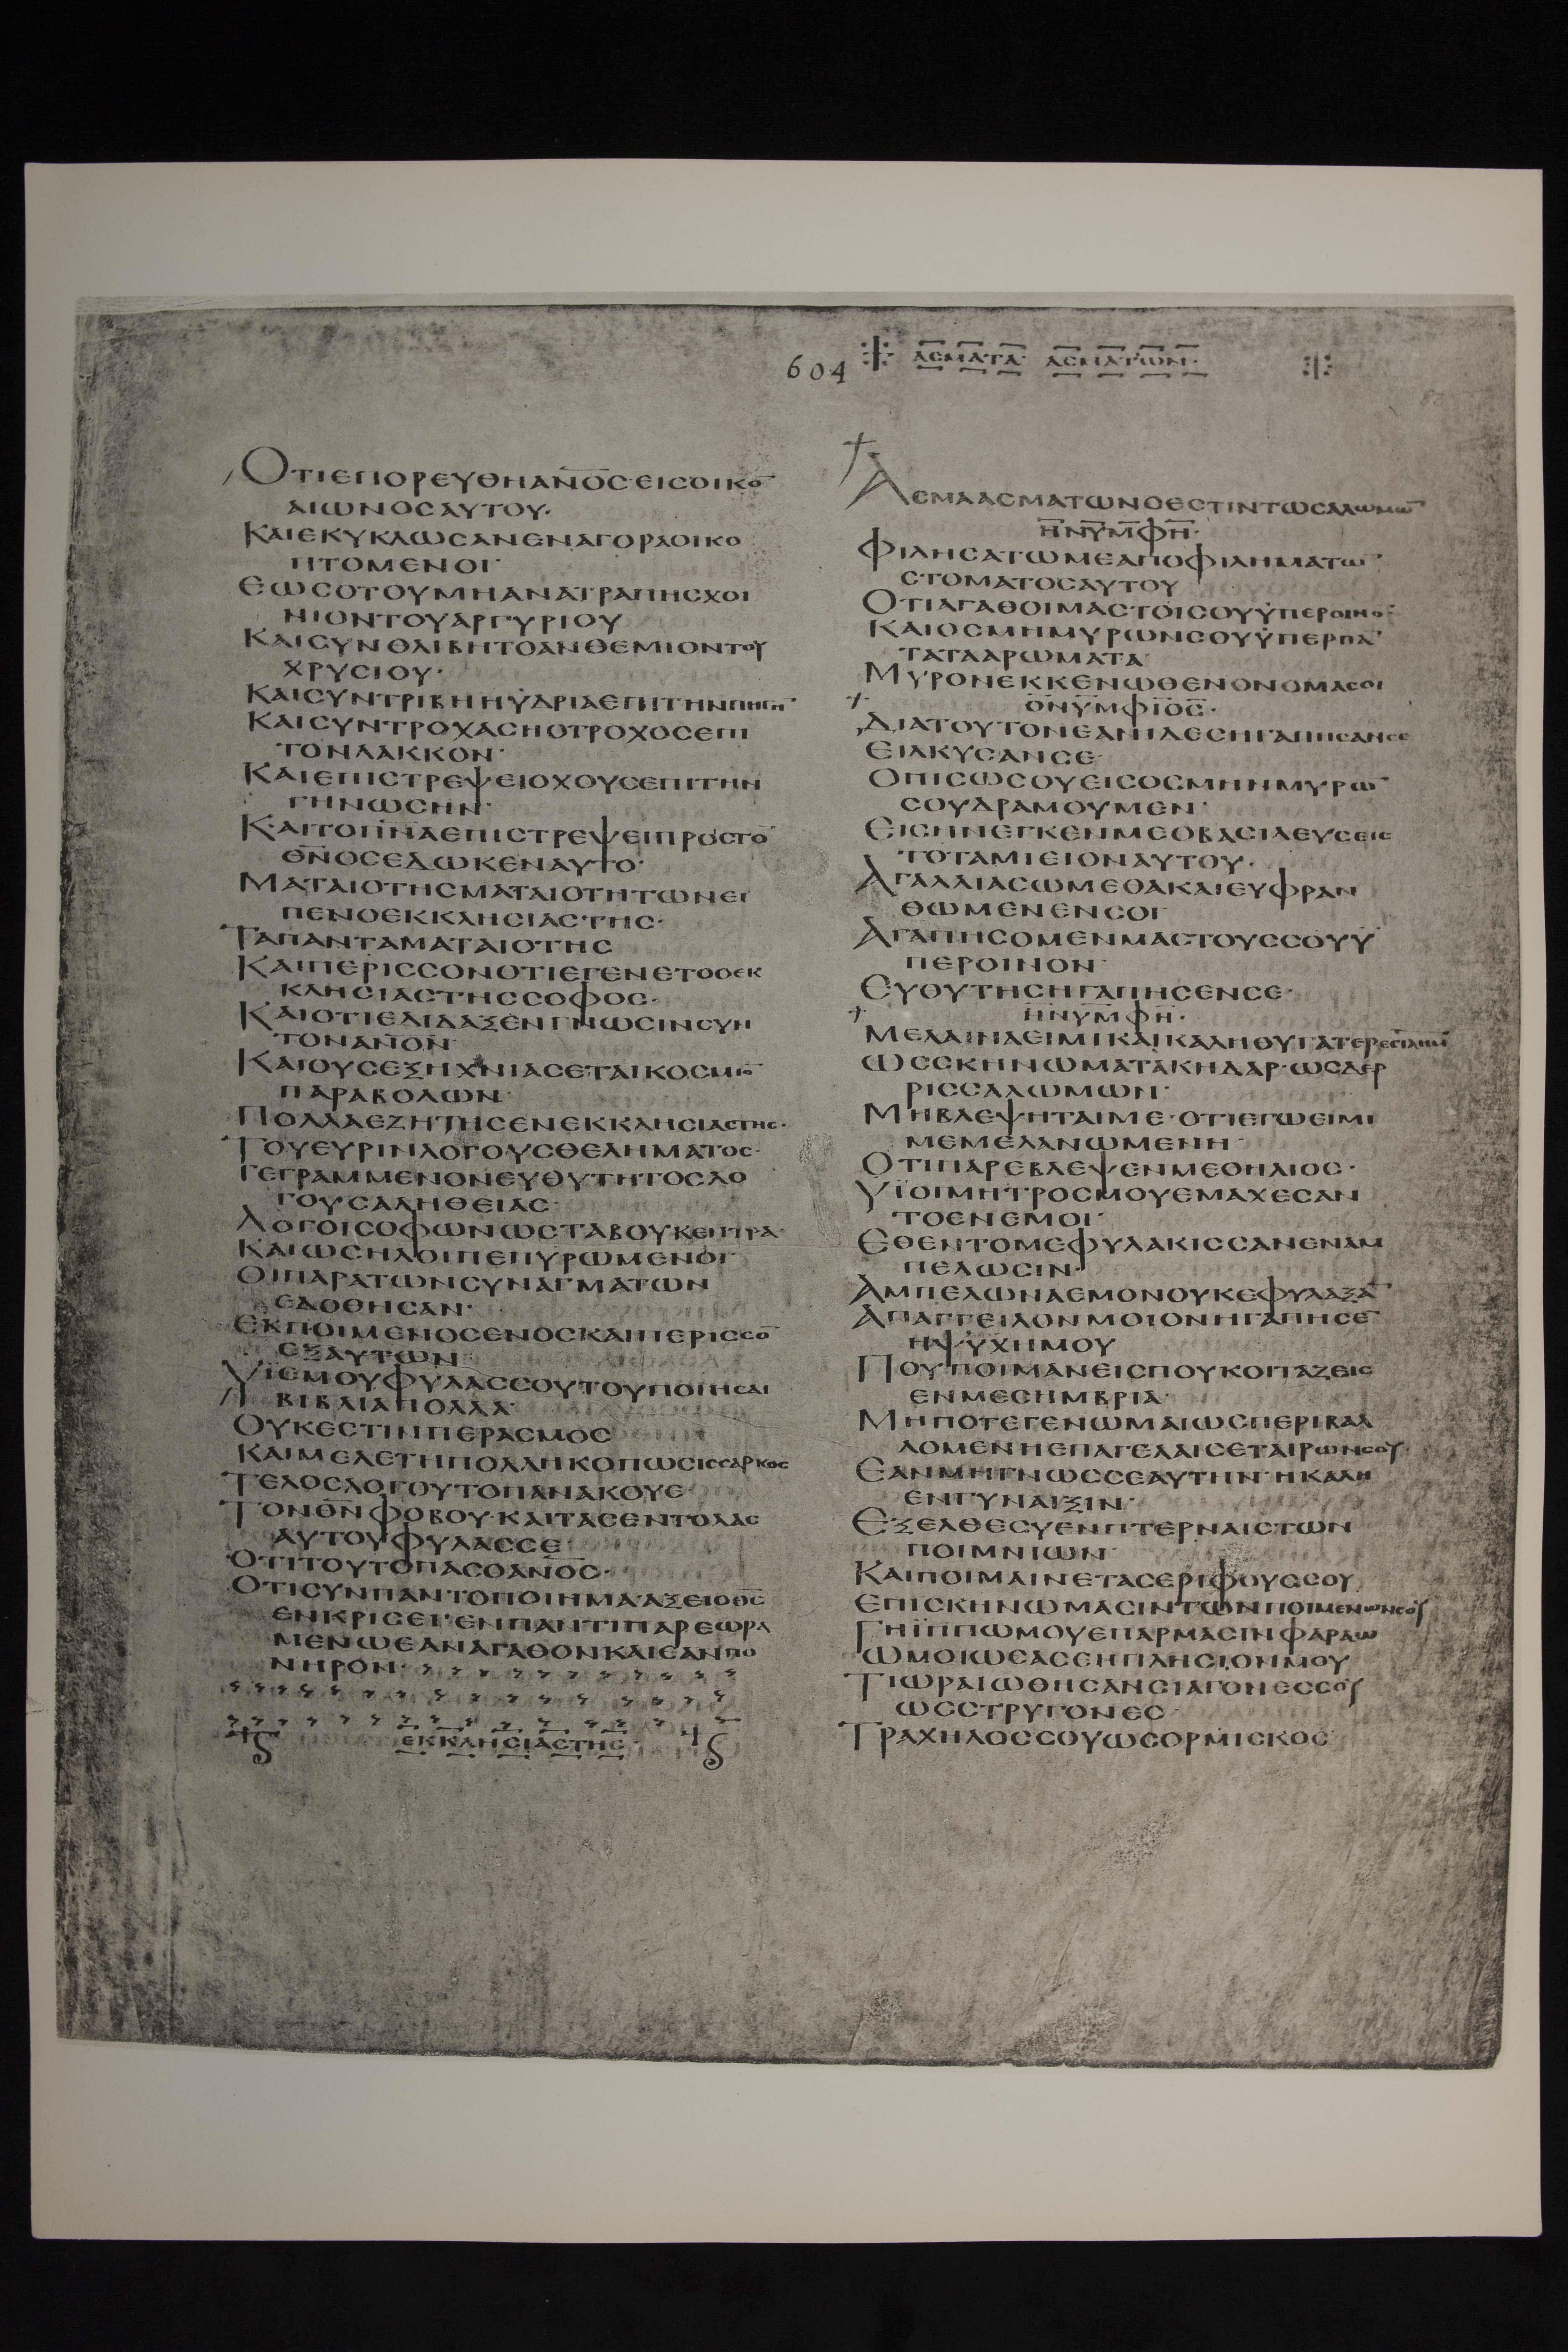 604 ΑΣΜΑΤΑ· ΑΣΜΑΤΩΝ·
ΟΤΙΕΠΟΡΕΥΘΗΑΝ̅Ο̅Σ̅·ΕΙΣΟΙΚΟ̅
ΑΙΩΝΟΣΑΥΤΟΥ·
ΚΑΙΕΚΥΚΛΩΣΑΝΕΝΑΓΟΡΑΟΙΚΟ
ΠΤΟΜΕΝΟΙ·
ΕΩΣΟΤΟΥΜΗΑΝΑΤΡΑΠΗΣΧΟΙ
ΝΙΟΝΤΟΥΑΡΓΥΡΙΟΥ
ΚΑΙΣΥΝΘΛΙΒΗΤΟΑΝΘΕΜΙΟΝΤΟΥ
ΧΡΥΣΙΟΥ·
ΚΑΙΣΥΝΤΡΙΒΗΗΫΔΡΙΑΕΠΙΤΗΝΠΗΓΗ̅·
ΚΑΙΣΥΝΤΡΟΧΑΣΗΟΤΡΟΧΟΣΕΠΙ
ΤΟΝΛΑΚΚΟΝ·
ΚΑΙΕΠΙΣΤΡΕΨΕΙΟΧΟΥΣΕΠΙΤΗΝ
ΓΗΝΩΣΗΝ·
ΚΑΙΤΟΠ̅Ν̅Α̅ΕΠΙΣΤΡΕΨΕΙΠΡΟΣΤΟ̅
Θ̅Ν̅ΟΣΕΔΩΚΕΝΑΥΤΟ·
ΜΑΤΑΙΟΤΗΣΜΑΤΑΙΟΤΗΤΩΝΕΙ
ΠΕΝΟΕΚΚΛΗΣΙΑΣΤΗΣ·
ΤΑΠΑΝΤΑΜΑΤΑΙΟΤΗΣ
ΚΑΙΠΕΡΙΣΣΟΝΟΤΙΕΓΕΝΕΤΟΟΕΚ
ΚΛΗΣΙΑΣΤΗΣΣΟΦΟΣ·
ΚΑΙΟΤΙΕΔΙΔΑΞΕΝΓΝΩΣΙΝΣΥΝ
ΤΟΝΑΝ̅Ο̅Ν̅
ΚΑΙΟΥΣΕΞΗΧΝΙΑΣΕΤΑΙΚΟΣΜΙΟ̅
ΠΑΡΑΒΟΛΩΝ·
ΠΟΛΛΑΕΖΗΤΗΣΕΝΕΚΚΛΗΣΙΑΣΤΗΣ·
ΤΟΥΕΥΡΙΝΛΟΓΟΥΣΘΕΛΗΜΑΤΟΣ·
ΓΕΓΡΑΜΜΕΝΟΝΕΥΘΥΤΗΤΟΣΛΟ
ΓΟΥΣΑΛΗΘΕΙΑΣ·
ΛΟΓΟΙΣΟΦΩΝΩΣΤΑΒΟΥΚΕΝΤΡΑ·
ΚΑΙΩΣΗΛΟΙΠΕΠΥΡΩΜΕΝΟΙ·
ΟΙΠΑΡΑΤΩΝΣΥΝΑΓΜΑΤΩΝ
ΕΔΟΘΗΣΑΝ·
ΕΚΠΟΙΜΕΝΟΣΕΝΟΣΚΑΙΠΕΡΙΣΣΟ̅
ΕΞΑΥΤΩΝ
ΥΪΕΜΟΥΦΥΛΑΣΣΟΥΤΟΥΠΟΙΗΣΑΙ
ΒΙΒΛΙΑΠΟΛΛΑ·
ΟΥΚΕΣΤΙΝΠΕΡΑΣΜΟΣ
ΚΑΙΜΕΛΕΤΗΠΟΛΛΗΚΟΠΩΣΙΣΣΑΡΚΟΣ
ΤΕΛΟΣΛΟΓΟΥΤΟΠΑΝΑΚΟΥΕ·
ΤΟΝΘ̅Ν̅ΦΟΒΟΥ·ΚΑΙΤΑΣΕΝΤΟΛΑΣ
ΑΥΤΟΥΦΥΛΑΣΣΕ·
ΟΤΙΤΟΥΤΟΠΑΣΟΑΝ̅Ο̅Σ̅·
ΟΤΙΣΥΝΠΑΝΤΟΠΟΙΗΜΑΑΞΕΙΟΘ̅Σ̅
ΕΝΚΡΙΣΕΙ·ΕΝΠΑΝΤΙΠΑΡΕΩΡΑ
ΜΕΝΩΕΑΝΑΓΑΘΟΝΚΑΙΕΑΝΠΟ
ΝΗΡΟΝ·
ΕΚΚΛΗΣΙΑΣΤΗΣ·
ΑΣΜΑΑΣΜΑΤΩΝΟΕΣΤΙΝΤΩΣΑΛΩΜΩ̅
ΗΝΥΜΦΗ·
ΦΙΛΗΣΑΤΩΜΕΑΠΟΦΙΛΗΜΑΤΩ̅
ΣΤΟΜΑΤΟΣΑΥΤΟΥ
ΟΤΙΑΓΑΘΟΙΜΑΣΤΟΙΣΟΥΫΠΕΡΟΙΝΟ̅·
ΚΑΙΟΣΜΗΜΥΡΩΝΣΟΥΫΠΕΡΠΑ̅
ΤΑΤΑΑΡΩΜΑΤΑ·
ΜΥΡΟΝΕΚΚΕΝΩΘΕΝΟΝΟΜΑΣΟΙ
ΟΝΥΜΦΙΟΣ·
ΔΙΑΤΟΥΤΟΝΕΑΝΙΔΕΣΗΓΑΠΗΣΑΝΣΕ
ΕΙΛΚΥΣΑΝΣΕ·
ΟΠΙΣΩΣΟΥΕΙΣΟΣΜΗΝΜΥΡΩ̅
ΣΟΥΔΡΑΜΟΥΜΕΝ·
ΕΙΣΗΝΕΓΚΕΝΜΕΟΒΑΣΙΛΕΥΣΕΙΣ
ΤΟΤΑΜΙΕΙΟΝΑΥΤΟΥ·
ΑΓΑΛΛΙΑΣΩΜΕΘΑΚΑΙΕΥΦΡΑΝ
ΘΩΜΕΝΕΝΣΟΙ·
ΑΓΑΠΗΣΟΜΕΝΜΑΣΤΟΥΣΣΟΥΫ
ΠΕΡΟΙΝΟΝ·
ΕΥΘΥΤΗΣΗΓΑΠΗΣΕΝΣΕ·
ΗΝΥΜΦΗ·
ΜΕΛΑΙΝΑΕΙΜΙΚΑΙΚΑΛΗΘΥΓΑΤΕΡΕΣΙΛΗΜ
ΩΣΣΚΗΝΩΜΑΤΑΚΗΔΑΡ·ΩΣΔΕΡ
ΡΙΣΣΑΛΩΜΩΝ·
ΜΗΒΛΕΨΗΤΑΙΜΕ·ΟΤΙΕΓΩΕΙΜΙ
ΜΕΜΕΛΑΝΩΜΕΝΗ·
ΟΤΙΠΑΡΕΒΛΕΨΕΝΜΕΟΗΛΙΟΣ·
ΥΪΟΙΜΗΤΡΟΣΜΟΥΕΜΑΧΕΣΑΝ
ΤΟΕΝΕΜΟΙ·
ΕΘΕΝΤΟΜΕΦΥΛΑΚΙΣΣΑΝΕΝΑΜ
ΠΕΛΩΣΙΝ·
ΑΜΠΕΛΩΝΑΕΜΟΝΟΥΚΕΦΥΛΑΞΑ̅
ΑΠΑΓΓΕΙΛΟΝΜΟΙΟΝΗΓΑΠΗΣΕ̅
ΗΨΥΧΗΜΟΥ
ΠΟΥΠΟΙΜΑΝΕΙΣΠΟΥΚΟΙΤΑΖΕΙΣ
ΕΝΜΕΣΗΜΒΡΙΑ·
ΜΗΠΟΤΕΓΕΝΩΜΑΙΩΣΠΕΡΙΒΑΛ
ΛΟΜΕΝΗΕΠΑΓΕΛΑΙΣΕΤΑΙΡΩΝΣΟΥ·
ΕΑΝΜΗΓΝΩΣΣΕΑΥΤΗΝ·ΗΚΑΛΗ
ΕΝΓΥΝΑΙΞΙΝ·
ΕΞΕΛΘΕΣΥΕΝΠΤΕΡΝΑΙΣΤΩΝ
ΠΟΙΜΝΙΩΝ·
ΚΑΙΠΟΙΜΑΙΝΕΤΑΣΕΡΙΦΟΥΣΣΟΥ
ΕΠΙΣΚΗΝΩΜΑΣΙΝΤΩΝΠΟΙΜΕΝΩΝΣΟΥ
ΤΗΪΠΠΩΜΟΥΕΠΑΡΜΑΣΙΝΦΑΡΑΩ
ΩΜΟΙΩΣΑΣΕΗΠΛΗΣΙΟΝΜΟΥ
ΤΙΩΡΑΙΩΘΗΣΑΝΣΙΑΓΟΝΕΣΣΟΥ
ΩΣΣΤΡΥΓΟΝΕΣ·
ΤΡΑΧΗΛΟΣΣΟΥΩΣΟΡΜΙΣΚΟΣ